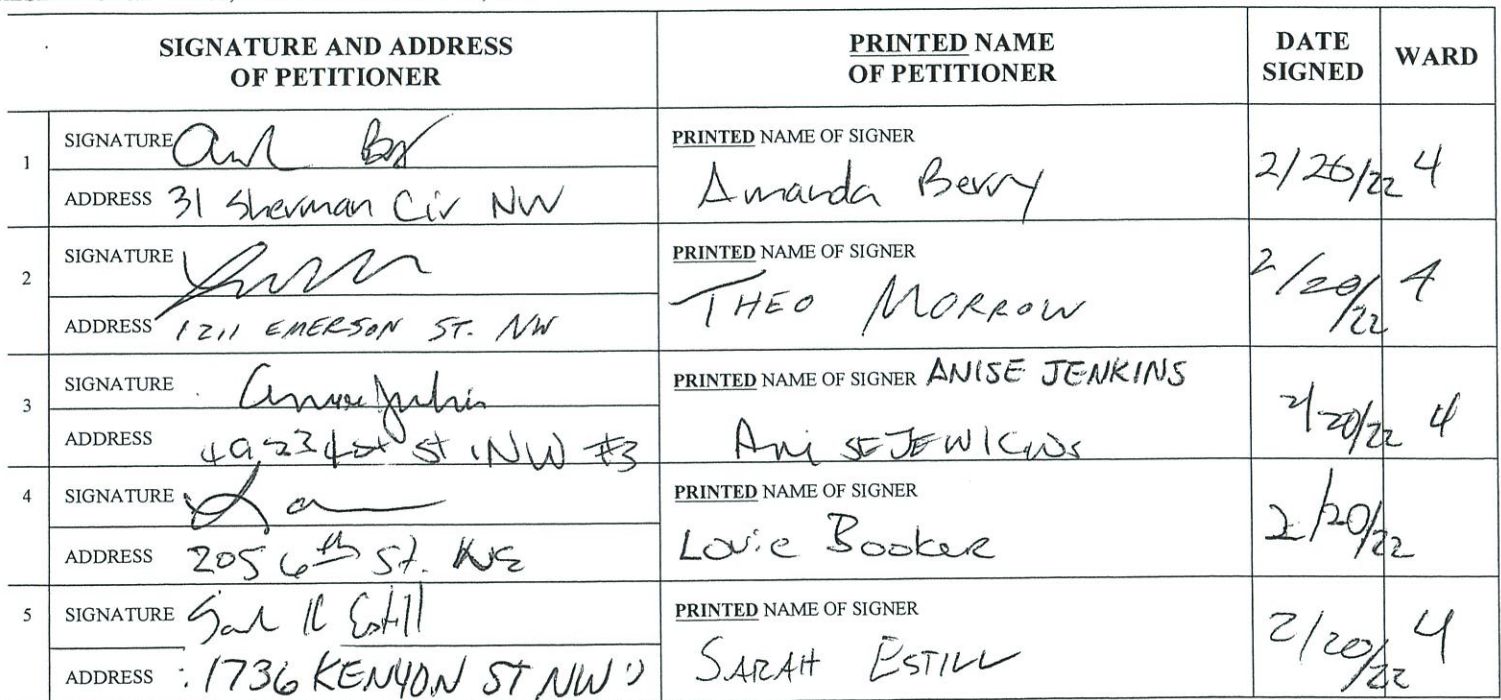 SIGNATURE AND ADDRESS OF PETITIONER
PRINTED NAME OF PETITIONER
DATE SIGNED
WARD
1
SIGNATURE
ADDRESS 31 Sherman Cir NW
PRINTED NAME OF SIGNER
Amanda Berry
2/20/22
4
2
SIGNATURE
ADDRESS 1211 EMERSON ST. NW
PRINTED NAME OF SIGNER
THEO MORROW
2/20/22
4
3
SIGNATURE
ADDRESS St NW #3
PRINTED NAME OF SIGNER ANISE JENKINS
2/20/22
4
4
SIGNATURE
ADDRESS 205 6th St. NE
PRINTED NAME OF SIGNER
Louie Booker
2/20/22
5
SIGNATURE Estill
ADDRESS 1736 KENYON ST NW
PRINTED NAME OF SIGNER
SARAH ESTILL
2/20/22
4